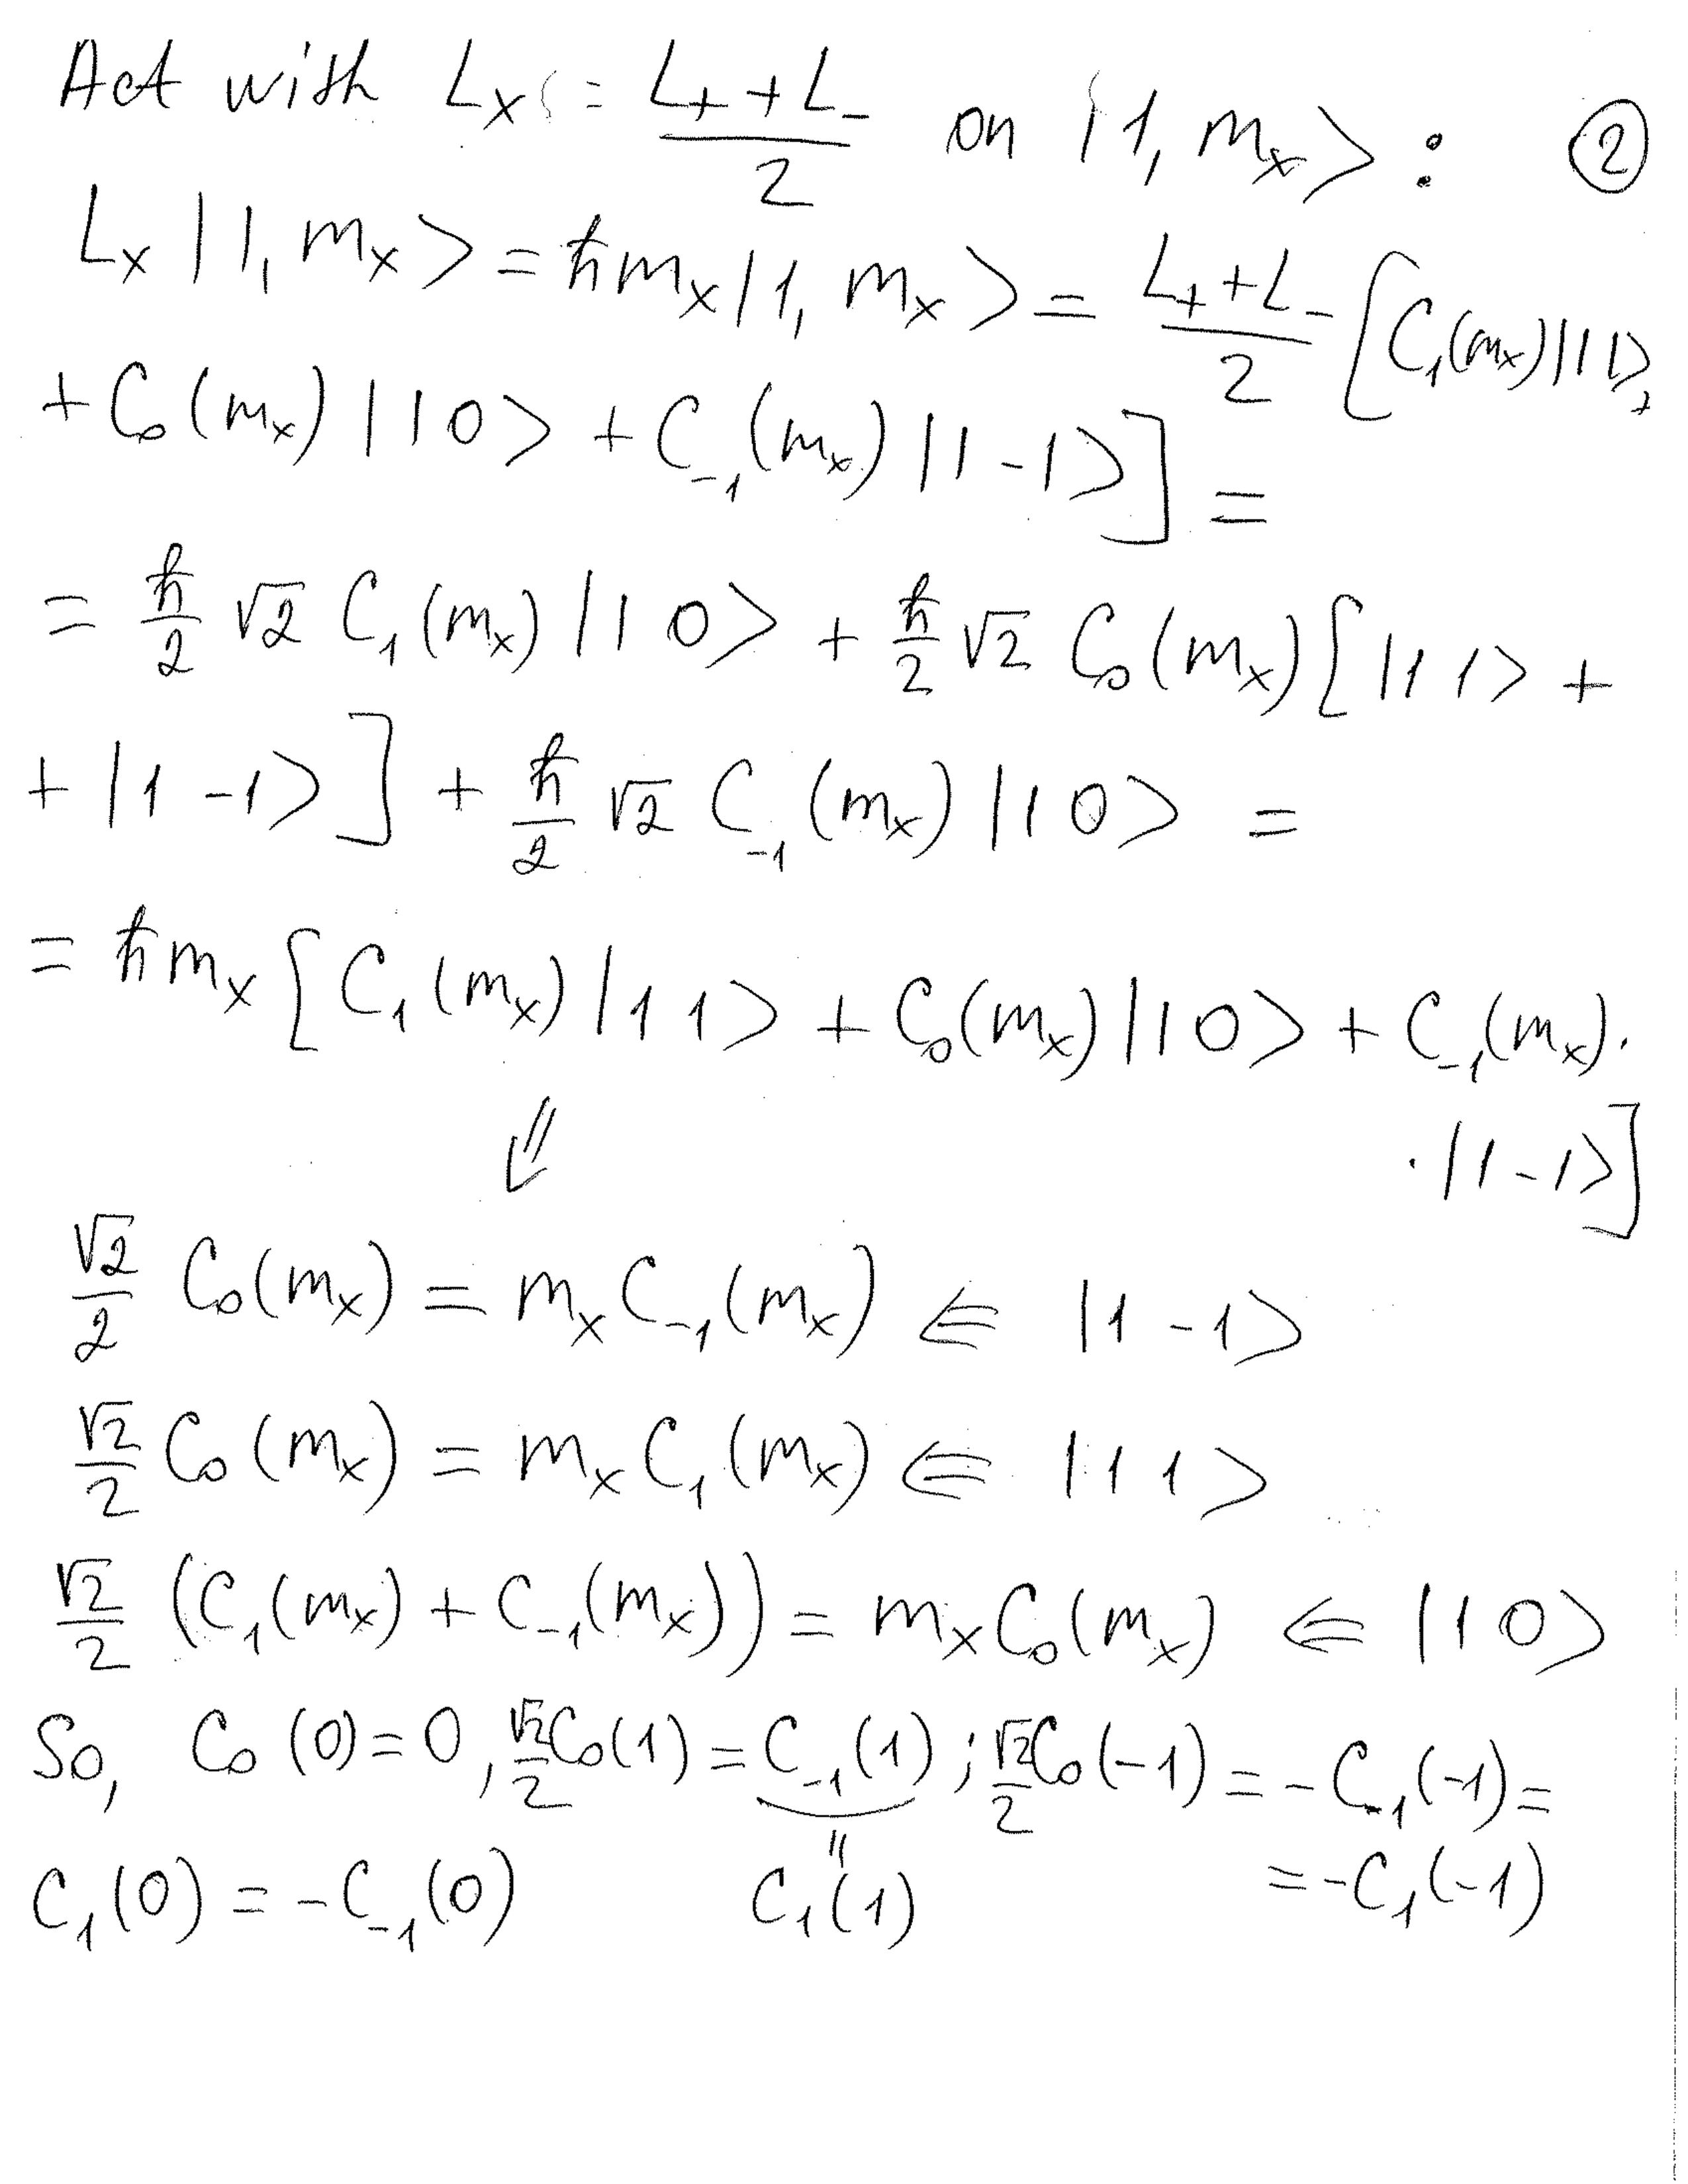 Act with Lₓ = (L₊ + L₋)/2 on |1, mₓ> : ②
Lₓ |1, mₓ> = ħmₓ |1, mₓ> = (L₊ + L₋)/2 [C₁(mₓ)|11> +
+ C₀(mₓ) |10> + C₋₁(mₓ) |1 -1>] =
= ħ/2 √2 C₁(mₓ) |1 0> + ħ/2 √2 C₀(mₓ) [|1 1> +
+ |1 -1>] + ħ/2 √2 C₋₁(mₓ) |10> =
= ħmₓ [C₁(mₓ) |11> + C₀(mₓ) |10> + C₋₁(mₓ) ·
⇓ · |1 -1>]
√2/2 C₀(mₓ) = mₓ C₋₁(mₓ) ⇐ |1 -1>
√2/2 C₀(mₓ) = mₓ C₁(mₓ) ⇐ |11>
√2/2 (C₁(mₓ) + C₋₁(mₓ)) = mₓ C₀(mₓ) ⇐ |10>
So, C₀(0) = 0, √2/2 C₀(1) = C₋₁(1) ; √2/2 C₀(-1) = -C₋₁(-1) =
C₁(0) = -C₋₁(0) = C₁(1) = -C₁(-1)